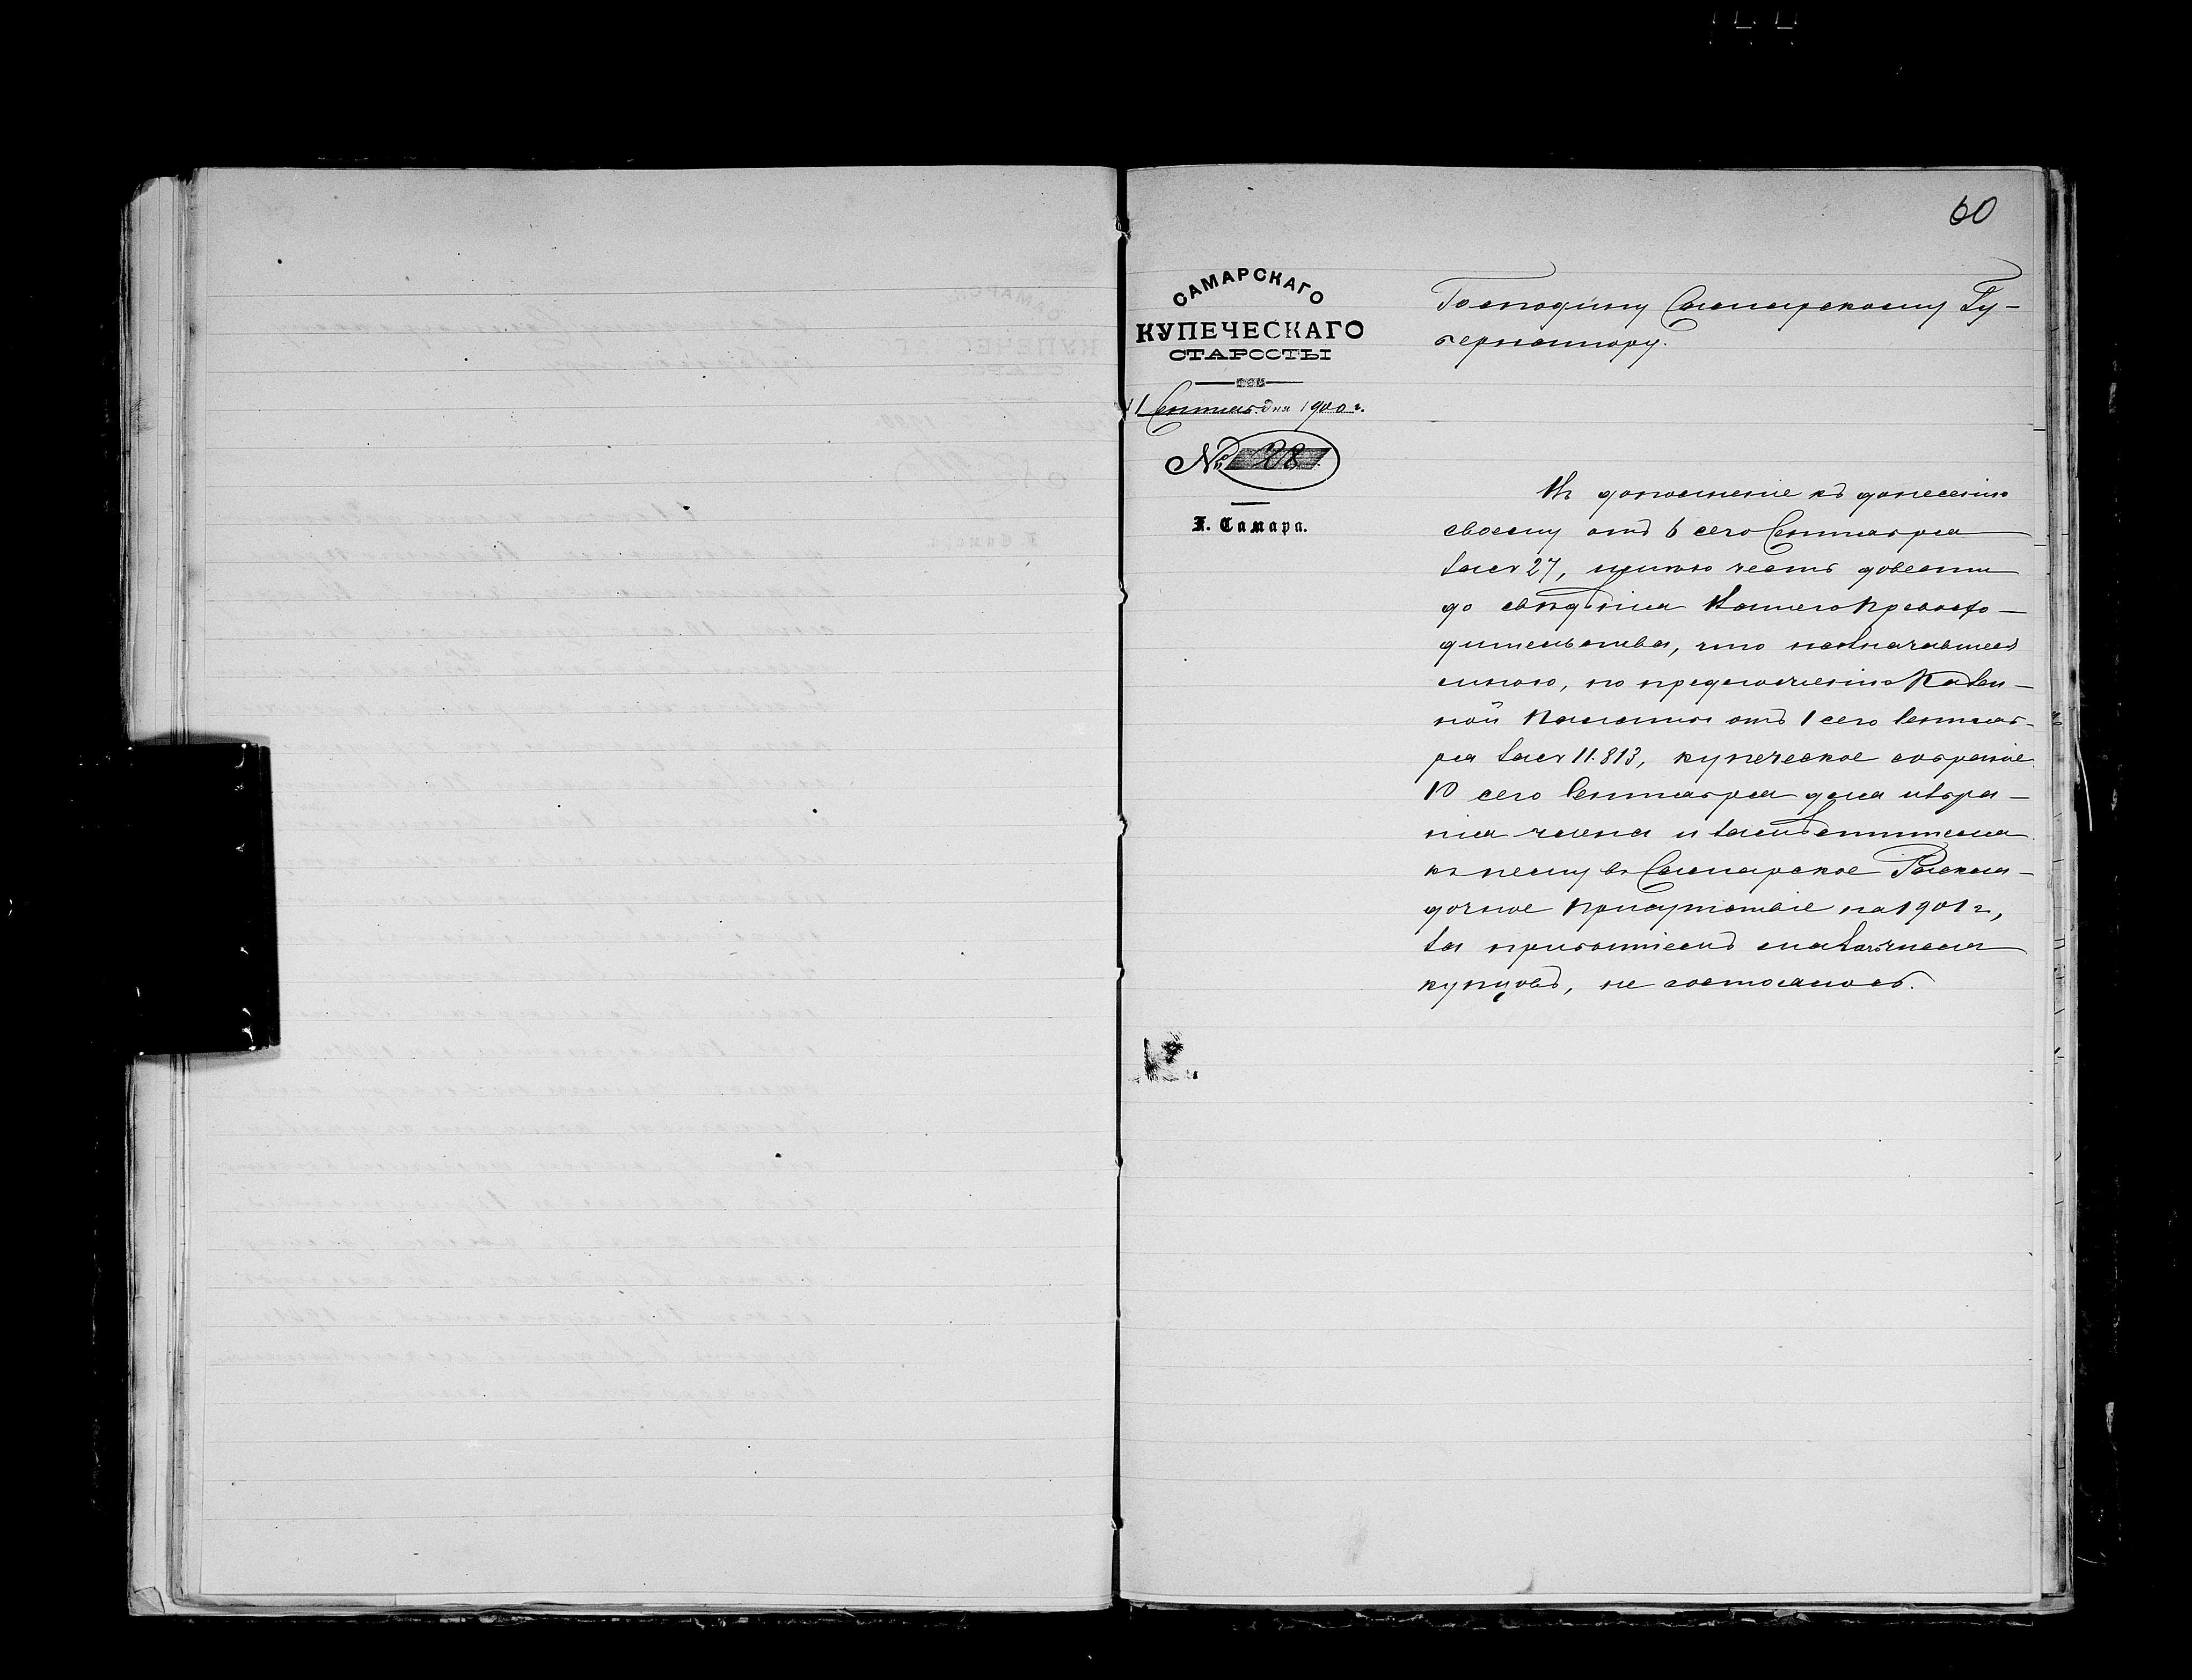 60
САМАРСКАГО
КУПЕЧЕСКАГО
СТАРОСТЫ
11 Сентяб. дня 1900 г.
№ 28
Г. Самара.
Господину Самарскому Гу-
бернатору.
Въ дополненіе къ донесенію
своему отъ 6 сего Сентября
за № 27, имѣю честь довести
до свѣдѣнія Вашего Превосхо-
дительства, что назначавшееся
мною, по предложенію Казен-
ной Палаты отъ 1 сего Сентяб-
ря за № 11.813, купеческое собраніе
10 сего Сентября для избра-
нія члена и замѣстителя
къ нему въ Самарское Расклад-
дочное Присутствіе на 1901 г,
за прибытіемъ малаго числа
купцовъ, не состоялось.